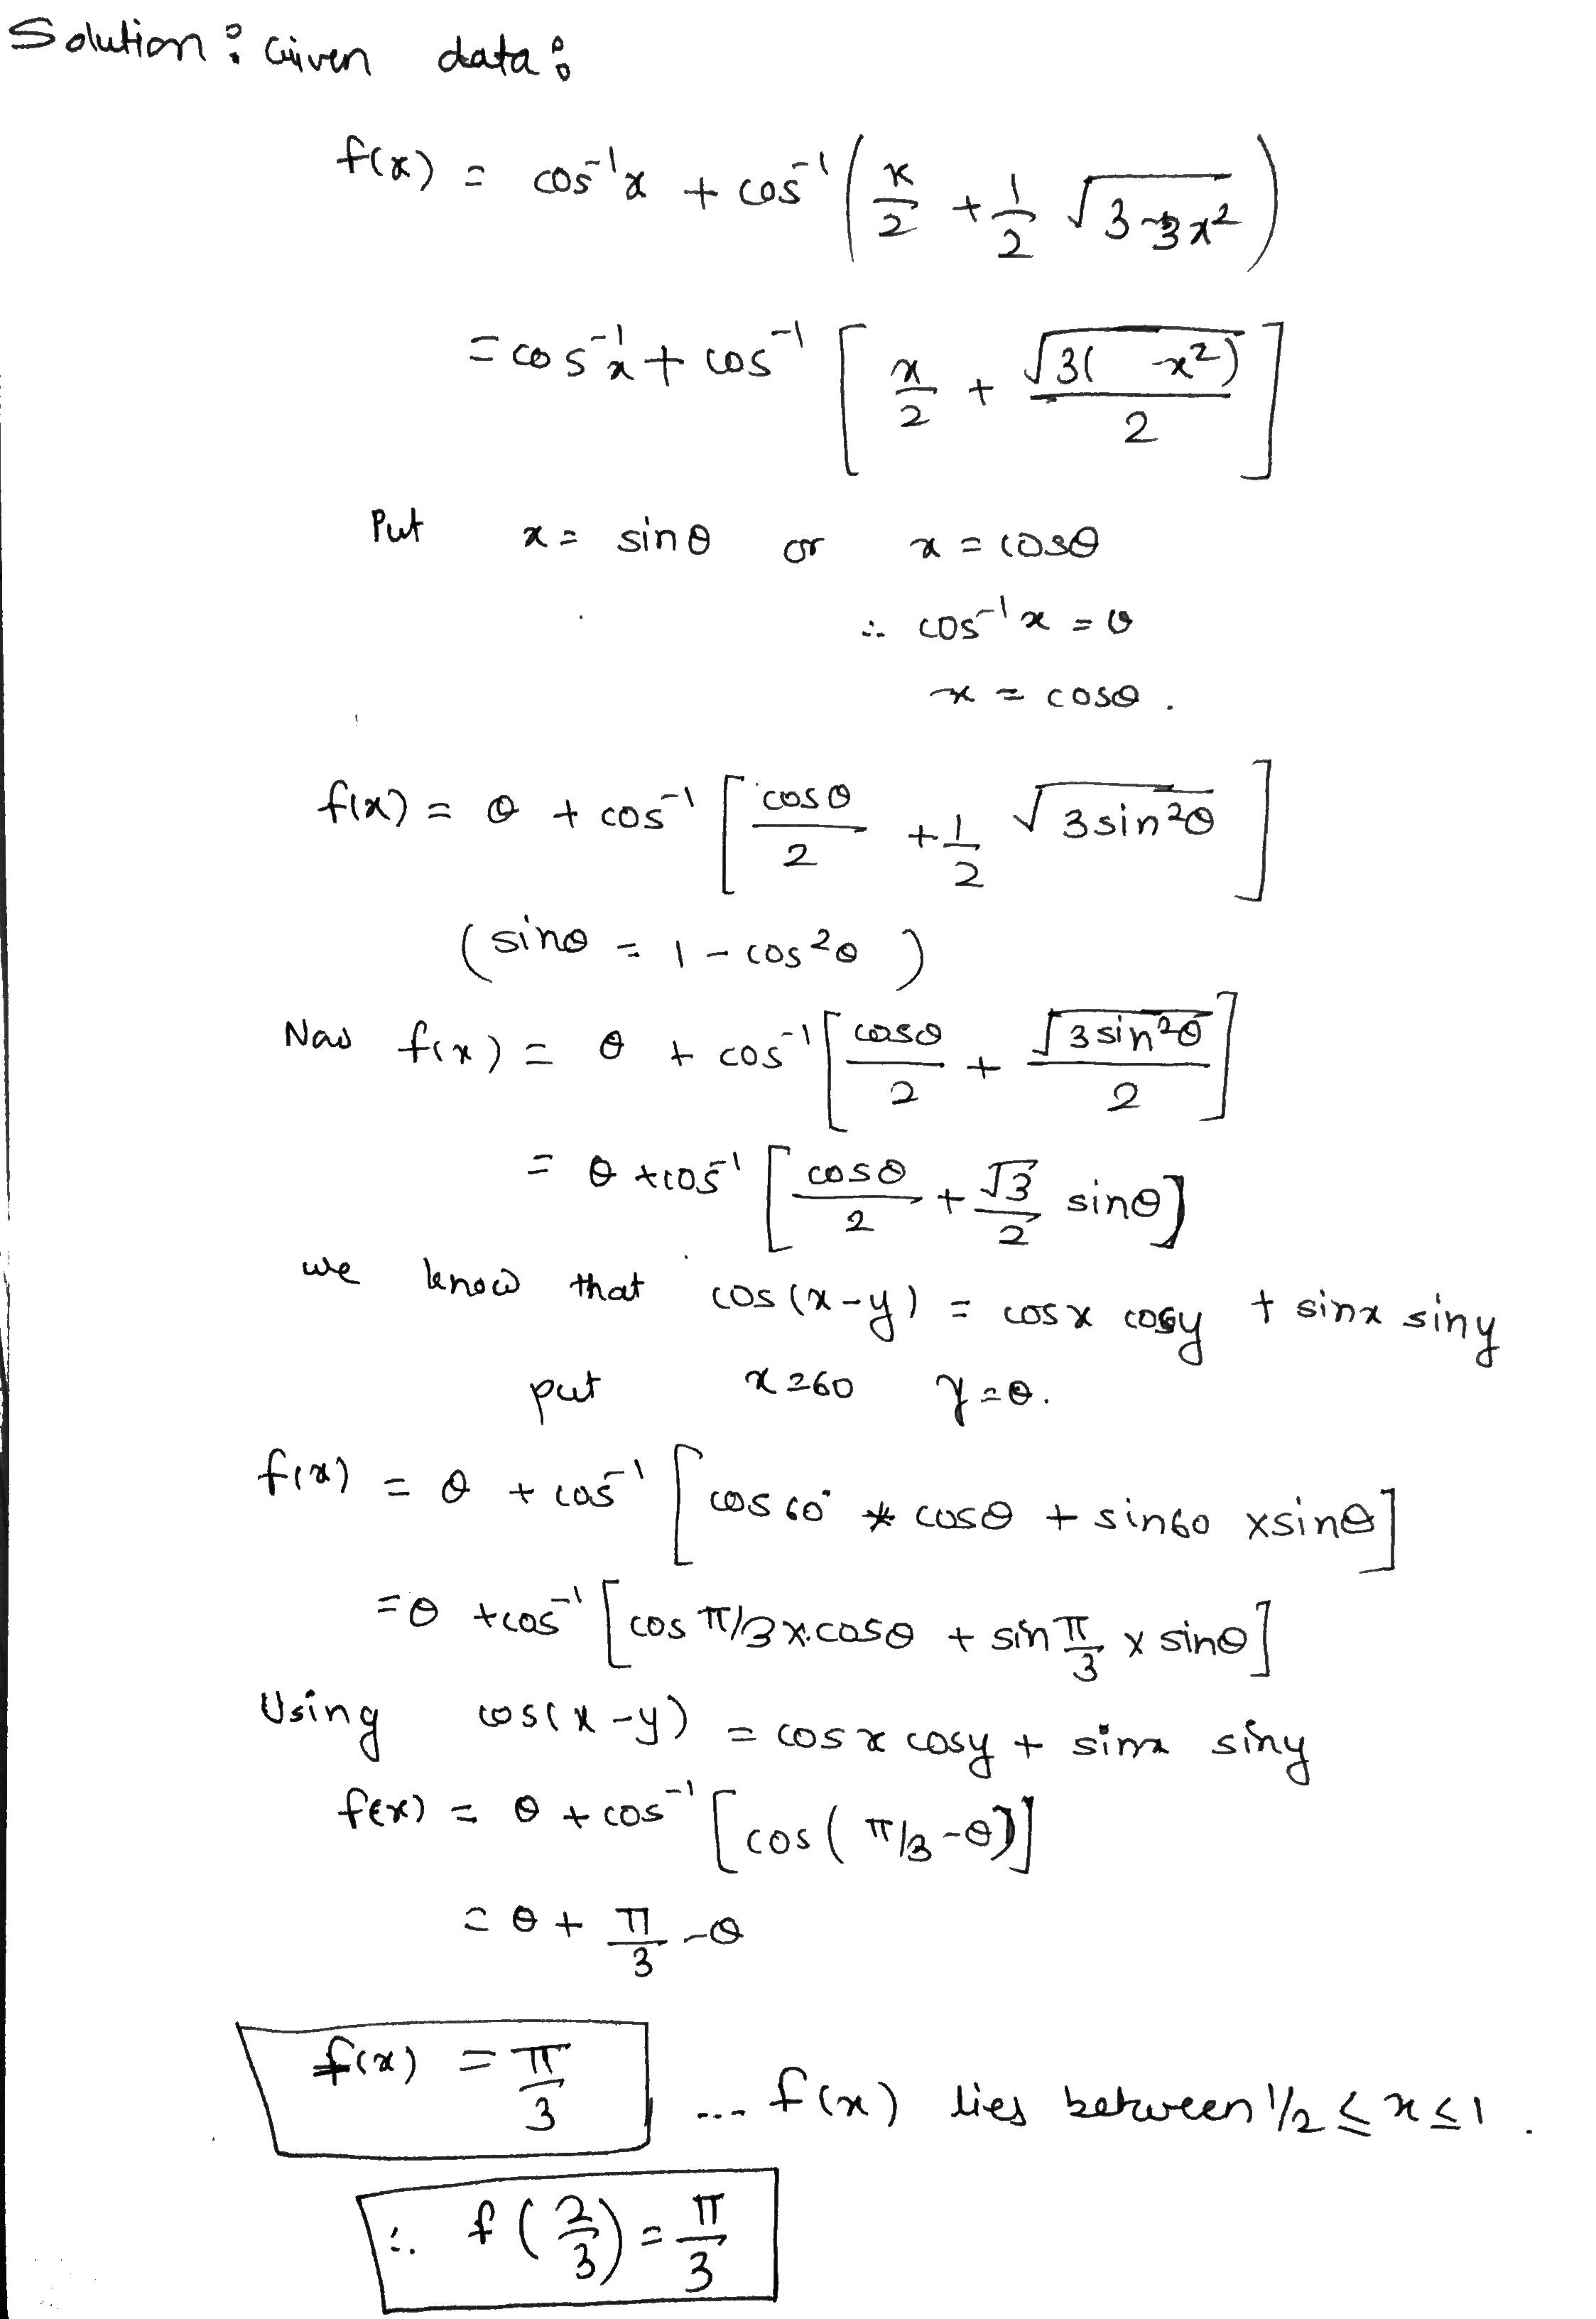 Solution : Given data :
f(x) = cos⁻¹x + cos⁻¹ ( x/2 + 1/2 √3-3x² )
= cos⁻¹x + cos⁻¹ [ x/2 + √3( -x²)/2 ]
Put x = sinθ or x = cosθ
∴ cos⁻¹x = θ
x = cosθ .
f(x) = θ + cos⁻¹ [ cosθ/2 + 1/2 √3sin²θ ]
( sinθ = 1 - cos²θ )
Now f(x) = θ + cos⁻¹ [ cosθ/2 + √3sin²θ/2 ]
= θ + cos⁻¹ [ cosθ/2 + √3/2 sinθ ]
we know that cos(x-y) = cosx cosy + sinx siny
put x=60 y=θ.
f(x) = θ + cos⁻¹ [ cos60° * cosθ + sin60 x sinθ ]
= θ + cos⁻¹ [ cos π/3 x cosθ + sin π/3 x sinθ ]
Using cos(x-y) = cosx cosy + sinx siny
f(x) = θ + cos⁻¹ [ cos( π/3 -θ) ]
= θ + π/3 - θ
f(x) = π/3 .... f(x) lies between 1/2 ≤ x ≤ 1 .
∴ f(2/3) = π/3